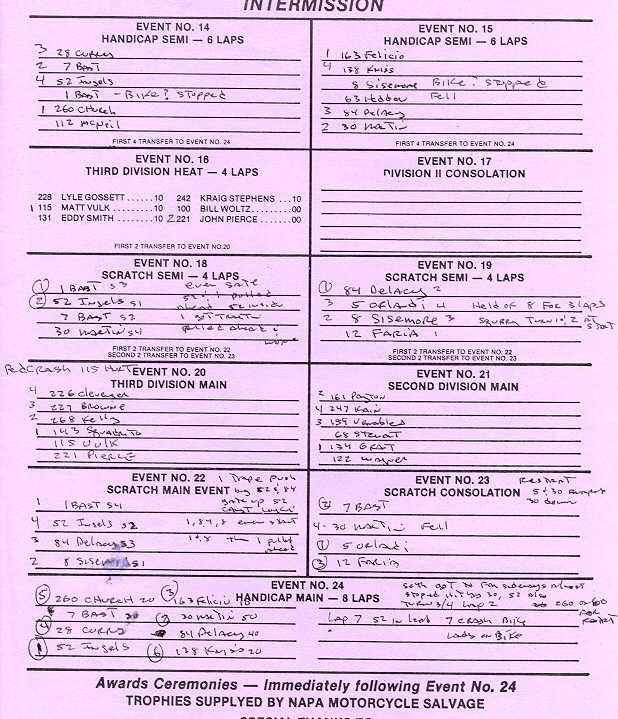 INTERMISSION
EVENT NO. 14
HANDICAP SEMI — 6 LAPS
3 28 CURNS
2 7 BAST
4 52 Ingels
1 BAST - BIKE? Stopped
1 260 CHURCH
112 McNeil
FIRST 4 TRANSFER TO EVENT NO. 24
EVENT NO. 15
HANDICAP SEMI — 6 LAPS
1 163 Felicio
4 138
8 Sisemore BIKE? Stopped
63 Fell
3 84 Delacy
2 30 MARTIN
FIRST 4 TRANSFER TO EVENT NO. 24
EVENT NO. 16
THIRD DIVISION HEAT — 4 LAPS
228 LYLE GOSSETT ......10 242 KRAIG STEPHENS ...10
1 115 MATT VULK .........10 100 BILL WOLTZ........00
131 EDDY SMITH .........10 2 221 JOHN PIERCE .......00
FIRST 2 TRANSFER TO EVENT NO.20
EVENT NO. 17
DIVISION II CONSOLATION
EVENT NO. 18
SCRATCH SEMI — 4 LAPS
1 1 BAST S3 even gate
2 52 Ingels S1 52 & 1 pulled
7 BAST S2 1 1ST TURN
30 MARTIN S4 pulled ahead
FIRST 2 TRANSFER TO EVENT NO. 22
SECOND 2 TRANSFER TO EVENT NO. 23
EVENT NO. 19
SCRATCH SEMI — 4 LAPS
1 84 Delacy 2
3 5 Orlandi 4 Held of 8 FOR 3 laps
2 8 Sisemore 3 TURN 1/2 AT START
12 FARIA 1
FIRST 2 TRANSFER TO EVENT NO. 22
SECOND 2 TRANSFER TO EVENT NO. 23
Red CRASH 115 HURT
EVENT NO. 20
THIRD DIVISION MAIN
4 226
3 227 BROWNE
2 268 Kelly
1 143
115 VULK
221 PIERCE
EVENT NO. 21
SECOND DIVISION MAIN
2 161
4 247 Kain
3 159 Venables
68 STEWART
1 134 GRAY
122 Wagner
EVENT NO. 22
SCRATCH MAIN EVENT
1 Tape Push
by 52 & 84
gate up 52
1 1 BAST S4
4 52 Ingels S2 1, 84, 8 even start
3 84 Delacy S3 1 & 8 then 1 pulled ahead
2 8 Sisemore S1
EVENT NO. 23
SCRATCH CONSOLATION
Restart
30 down
2 7 BAST
4 - 30 MARTIN Fell
1 5 Orlandi
3 12 FARIA
EVENT NO. 24
HANDICAP MAIN — 8 LAPS
5 260 CHURCH 20 3 163 Felicio 10
7 BAST 2 30 MARTIN 50
4 28 CURNS 84 Delacy 40
1 52 Ingels 6 138 20
TURN 3/4 Lap 2
Lap 7 52 in lead 7 crash Bike
Lands on Bike
Awards Ceremonies — Immediately following Event No. 24
TROPHIES SUPPLYED BY NAPA MOTORCYCLE SALVAGE